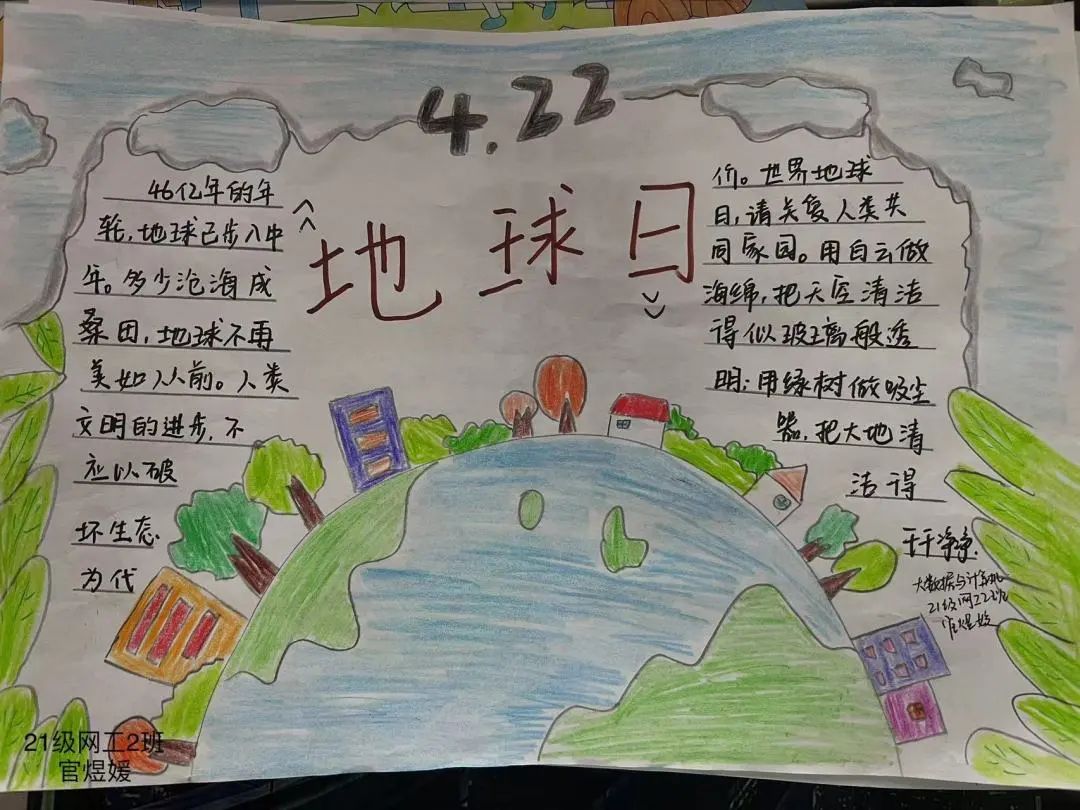 4.22
《地球日》
46亿年的年
轮,地球已步入中
年。多少沧海成
桑田,地球不再
美如从前。人类
文明的进步,不
应以破
坏生态
为代
价。世界地球
日,请关爱人类共
同家园。用白云做
海绵,把天空清洁
得似玻璃般透
明;用绿树做吸尘
器,把大地清
洁得
干干净净.
大数据与计算机
21级网工2班
官煜媛
21级网工2班
官煜媛